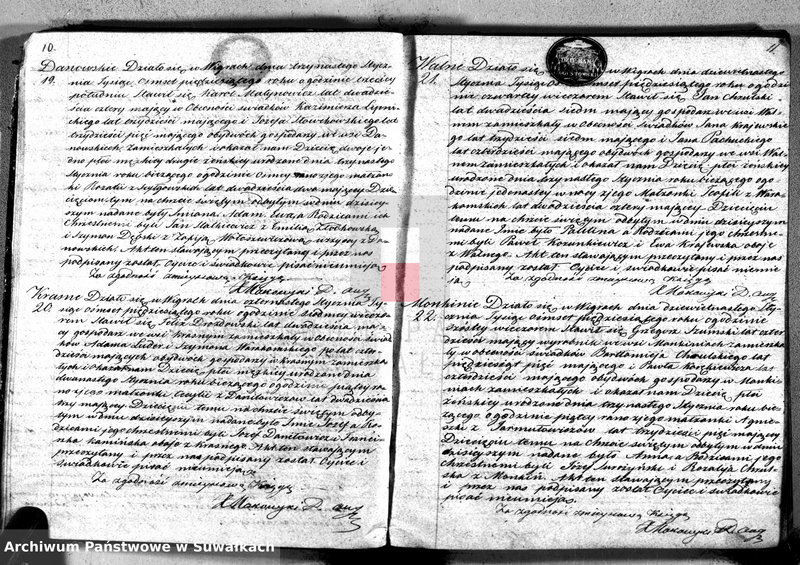 10.
Danowskie Działo się w Wigrach dnia trzynastego Stycz-
19. nia Tysiąc Ośmset pięćdziesiątego roku o godzinie trzeciej
popołudniu Stawił się Karol Malynowicz lat dwadzie-
ścia cztery mający w Obecności świadków Kazimierza
lat trzydzieści mającego i Józefa lat
trzydzieści pięć mającego obydwóch gospodarzy we wsi Da-
nowskich zamieszkałych i okazał nam Dziecię dwoje je-
dno płci męzkiej drugie żeńskiej urodzone dnia trzynastego
Stycznia roku bieżącego o godzinie ósmej rano z jego małżon-
ki Rozalii z lat dwadzieścia dwa mającej Dzie-
cięciom tym na chrzcie świętym odbytym w dniu dzisiej-
szym nadane były Imiona Adam, Ewa a Rodzicami ich
Chrzestnemi byli Jan z Emilią
i Szymon z Zofią wszyscy z Da-
nowskich. Akt ten stawającym przeczytany i przez nas
podpisany został Ojciec i świadkowie pisać nieumieją
Za zgodność zmiejscową Księgą
X Makowski D. Aug
Krasne Działo się w Wigrach dnia czternastego Stycznia Ty-
20. siąc ośmset pięćdziesiątego roku o godzinie siódmej wieczo-
rem Stawił się Felix Drozdowski lat dwadzieścia ma-
jący gospodarz we wsi Krasnym zamieszkały w Obecności świad-
ków Adama i Szymona po lat czter-
dzieści mających obydwóch gospodarzy w Krasnym zamieszka-
łych i okazał nam Dziecię płci męzkiej urodzone dnia
dwunastego Stycznia roku bieżącego o godzinie piątej ra-
no z jego małżonki Cecylii z Daniłowiczów lat dwadzieścia
trzy mającej Dziecięciu temu na chrzcie świętym odby-
tym w dniu dzisiejszym nadane było Imie Józef a Ro-
dzicami jego chrzestnemi byli Józef Daniłowicz i Franci-
szka Kamińska oboje z Krasnego. Akt ten stawającym
przeczytany i przez nas podpisany został Ojciec i
świadkowie pisać nieumieją.
Za zgodność zmiejscową Księgą
X Makowski D. Aug
11
Walne Działo się w Wigrach dnia dziewiętnastego
21. Stycznia Tysiąc Ośmset pięćdziesiątego roku o godzi-
nie czwartej wieczorem Stawił się Jan Chmielski
lat dwadzieścia siedm mający gospodarz we wsi Wal-
nem zamieszkały w Obecności świadków Jana Krajewskie-
go lat trzydzieści siedm mającego i Jana Pachuckiego
lat czterdzieści mającego obydwóch gospodarzy we wsi Wal-
nem zamieszkałych i okazał nam Dziecię płci żeńskiej
urodzone dnia trzynastego Stycznia roku bieżącego o go-
dzinie jedenastej w nocy z jego Małżonki Teofili z
lat dwadzieścia cztery mającej. Dziecięciu
temu na chrzcie świętym odbytym w dniu dzisiejszym
nadane Imie było Paulina a Rodzicami jego chrzestne-
mi byli Paweł i Ewa Krajewska oboje
z Walnego. Akt ten stawającym przeczytany i przez nas
podpisany został Ojciec i świadkowie pisać nieumie-
ją
Za zgodność zmiejscową Księgą
X Makowski D. Aug
Monkinie Działo się w Wigrach dnia dziewiętnastego Sty-
22. cznia Tysiąc ośmset pięćdziesiątego roku o godzinie
szóstej wieczorem Stawił się Grzegorz Szumski lat czter-
dzieści mający wyrobnik we wsi Monkiniach zamieszka-
ły w obecności świadków Bartłomieja Chmielskiego lat
pięćdziesiąt pięć mającego i Pawła lat
czterdzieści mającego obydwóch gospodarzy w Monki-
niach zamieszkałych i okazał nam Dziecię płci
żeńskiej urodzone dnia trzynastego Stycznia roku bie-
żącego o godzinie piątej rano z jego małżonki Agnie-
szki z Jarmułowiczów lat trzydzieści pięć mającej
Dziecięciu temu na Chrzcie świętym odbytym w dniu
dzisiejszym nadane było Anna a Rodzicami jego
chrzestnemi byli Józef i Rozalia
z Monkiń. Akt ten stawającym przeczytany
i przez nas podpisany został Ojciec i świadkowie
pisać nieumieją.
Za zgodność zmiejscową Księgą
X Makowski D. Aug
Archiwum Państwowe w Suwałkach